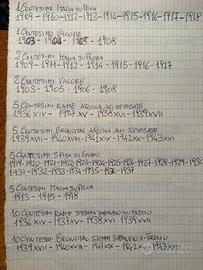 1 Centesimo Italia su Prora
1909-1910-1912-1913-1914-1915-1916-1917-1918
1 Centesimo Valore
1903-1904-1905-1908
2 Centesimi Italia su Prora
1909-1911-1912-1914-1915-1916-1917
2 Centesimi Valore
1903-1905-1906-1908
5 Centesimi Rame Aquila Ali Spiegate
1936 XIV-1937 XV-1938 XVI-1939 XVII
5 Centesimi Bronzital Aquila Ali Spiegate
1939 XVII-1940 XVIII-1941 XIX-1942 XX-1943 XXI
5 Centesimi Spiga di Grano
1919-1920-1921-1922-1923-1924-1925-1926-1927-1928-1929-1930
1931-1932-1933-1934-1935-1936-1937
5 Centesimi Italia su Prora
1913-1915-1918
10 Centesimi Rame Stemma Sabaudo su Fascio
1936 XIV-1937 XV-1938 XVI-1939 XVII
10 Centesimi Bronzital Stemma Sabaudo
1939 XVII-1940 XVIII-1941 XIX-1942 XX-1943 XXI